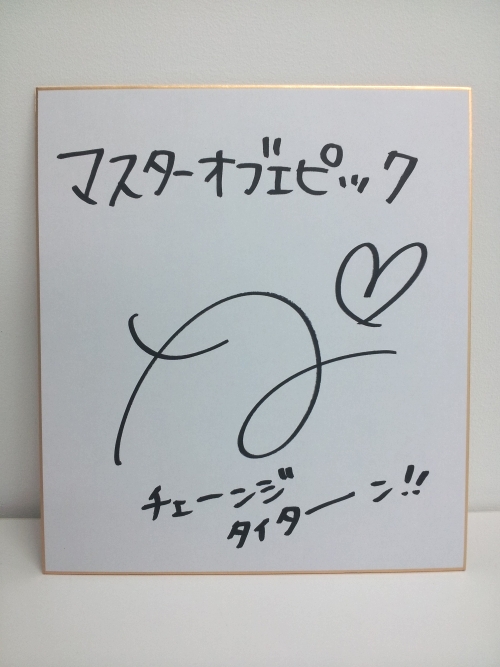 マスターオブエピック
チェーンジ
タイターーン!!